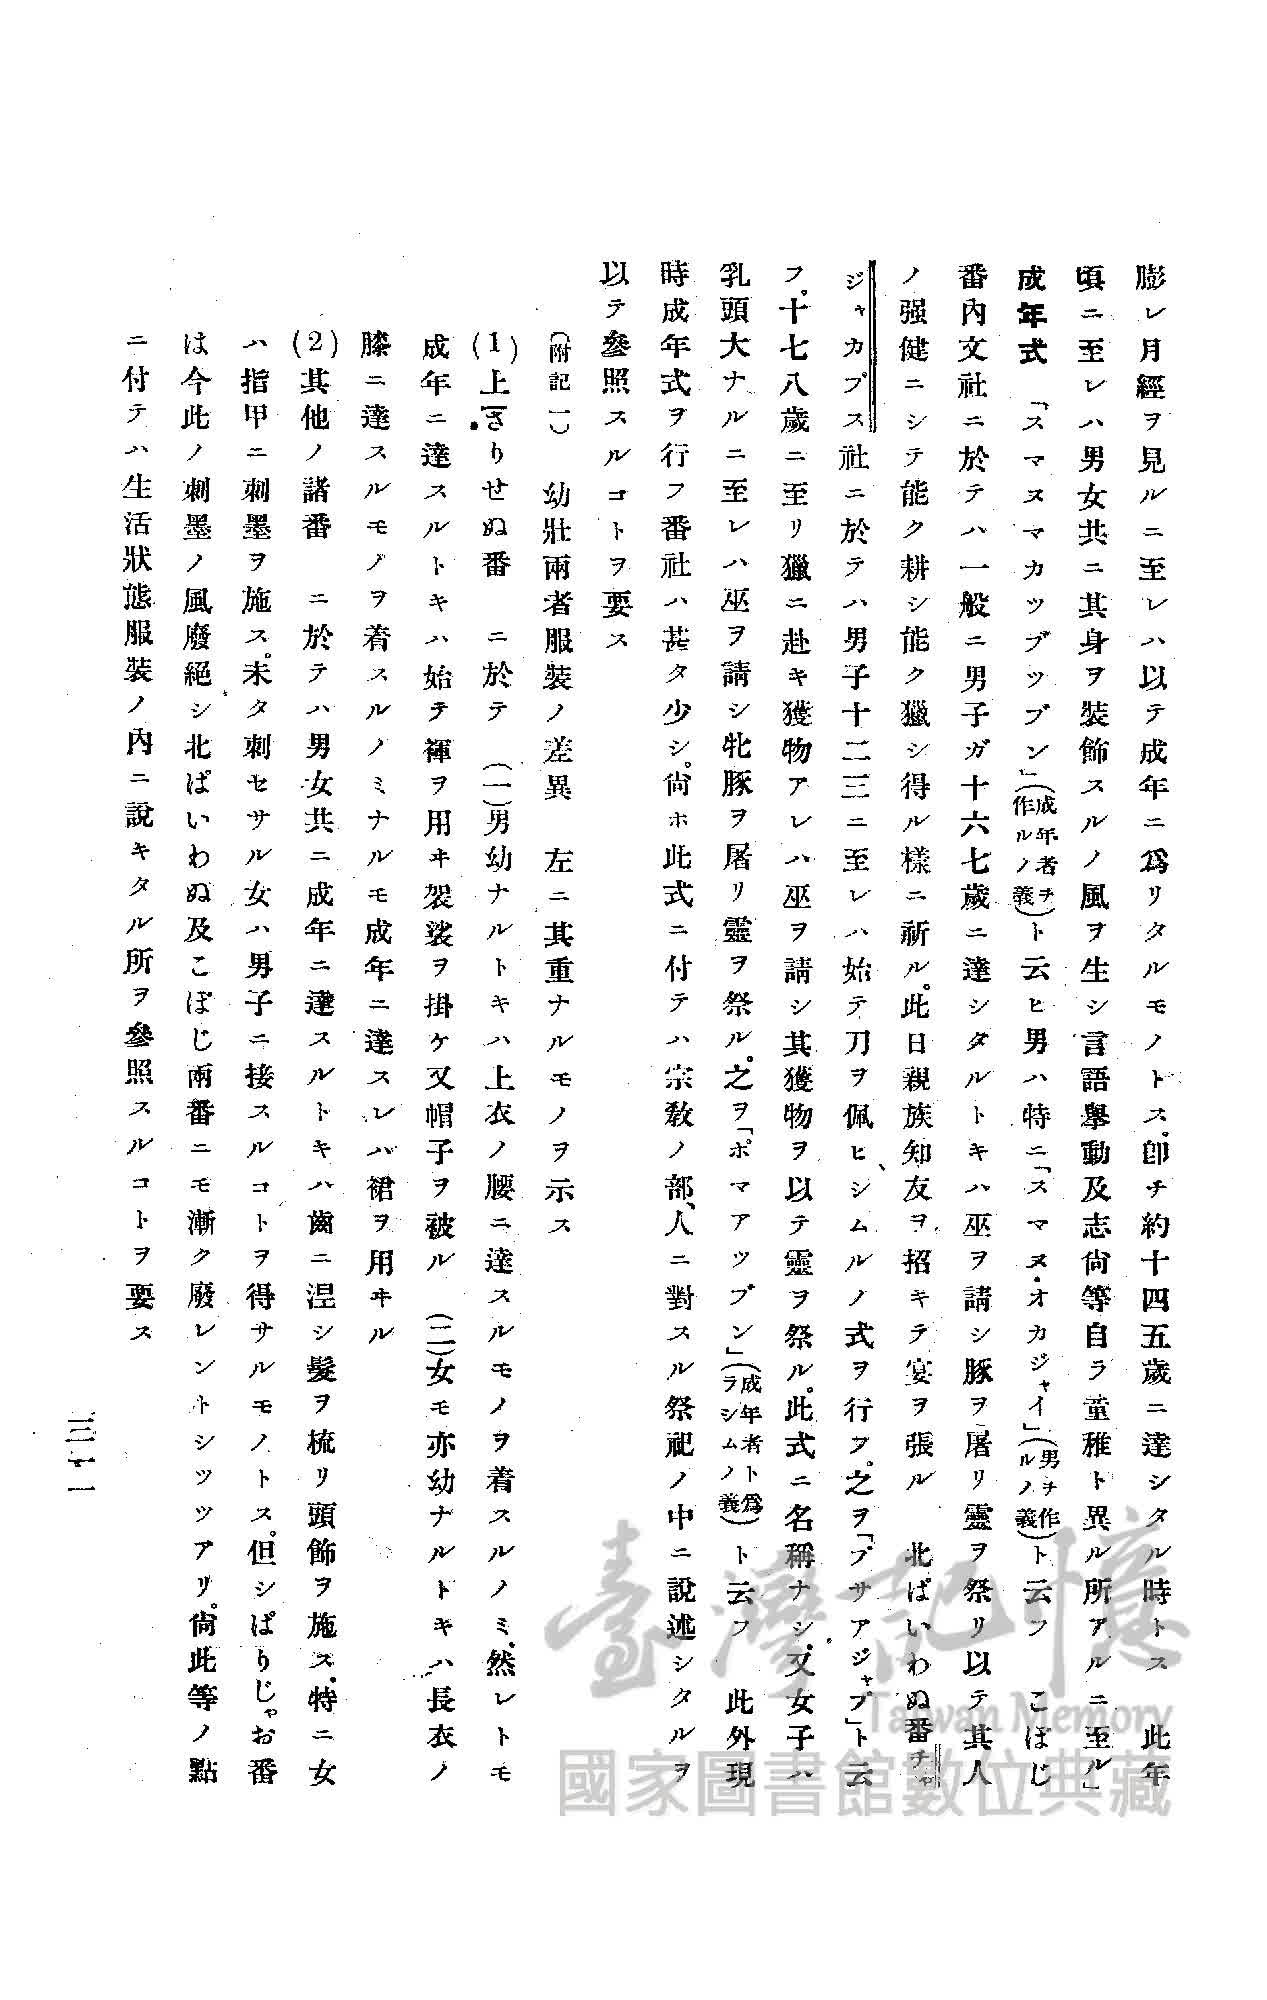 膨レ月經ヲ見ルニ至レハ以テ成年ニ爲リタルモノトス。卽チ約十四五歲ニ達シタル時トス　此年
頃ニ至レハ男女共ニ其身ヲ裝飾スルノ風ヲ生シ言語擧動及志尙等自ラ童雅ト異ル所アルニ至ル」
成年式　「スマヌマカツブツブン」(成年者チ作ルノ義)ト云ヒ男ハ特ニ「スマヌ・オカジャイ」(男チ作ルノ義)ト云フ　こぼじ
番內文社ニ於テハ一般ニ男子ガ十六七歲ニ達シタルトキハ巫ヲ請シ豚ヲ屠リ靈ヲ祭リ以テ其人
ノ强健ニシテ能ク耕シ能ク獵シ得ル樣ニ祈ル。此日親族知友ヲ招キテ宴ヲ張ル　北ぱいわぬ番チャ
ジャカブス社ニ於テハ男子十二三ニ至レハ始テ刀ヲ佩ヒ、シムルノ式ヲ行フ。之ヲ「ブサアジャブ」ト云
フ。十七八歲ニ至リ獵ニ赴キ獲物アレハ巫ヲ請シ其獲物ヲ以テ靈ヲ祭ル。此式ニ名稱ナシ。又女子ハ
乳頭大ナルニ至レハ巫ヲ請シ牝豚ヲ屠リ靈ヲ祭ル。之ヲ「ポマアツブン」(成年者ト爲ラシムノ義)ト云フ　此外現
時成年式ヲ行フ番社ハ甚タ少シ。尙ホ此式ニ付テハ宗敎ノ部、人ニ對スル祭祀ノ中ニ說述シタルヲ
以テ參照スルコトヲ要ス
(附記一)　幼壯兩者服裝ノ差異　左ニ其重ナルモノヲ示ス
(1)上さりせぬ番　ニ於テ　(一)男幼ナルトキハ上衣ノ腰ニ達スルモノヲ着スルノミ。然レトモ
成年ニ達スルトキハ始テ褌ヲ用ヰ袈裟ヲ掛ケ又帽子ヲ被ル　(二)女モ亦幼ナルトキハ長衣ノ
膝ニ達スルモノヲ着スルノミナルモ成年ニ達スレバ裙ヲ用ヰル
(2)其他ノ諸番　ニ於テハ男女共ニ成年ニ達スルトキハ齒ニ涅シ髮ヲ梳リ頭飾ヲ施ス。特ニ女
ハ指甲ニ刺墨ヲ施ス。未タ刺セサル女ハ男子ニ接スルコトヲ得サルモノトス。但シぱりじゃお番
は今此ノ刺墨ノ風廢絕シ北ぱいわぬ及こぼじ兩番ニモ漸ク廢レントシツツアリ。尙此等ノ點
ニ付テハ生活狀態服裝ノ內ニ說キタル所ヲ參照スルコトヲ要ス
三十一
臺灣記憶
Taiwan Memory
國家圖書館數位典藏